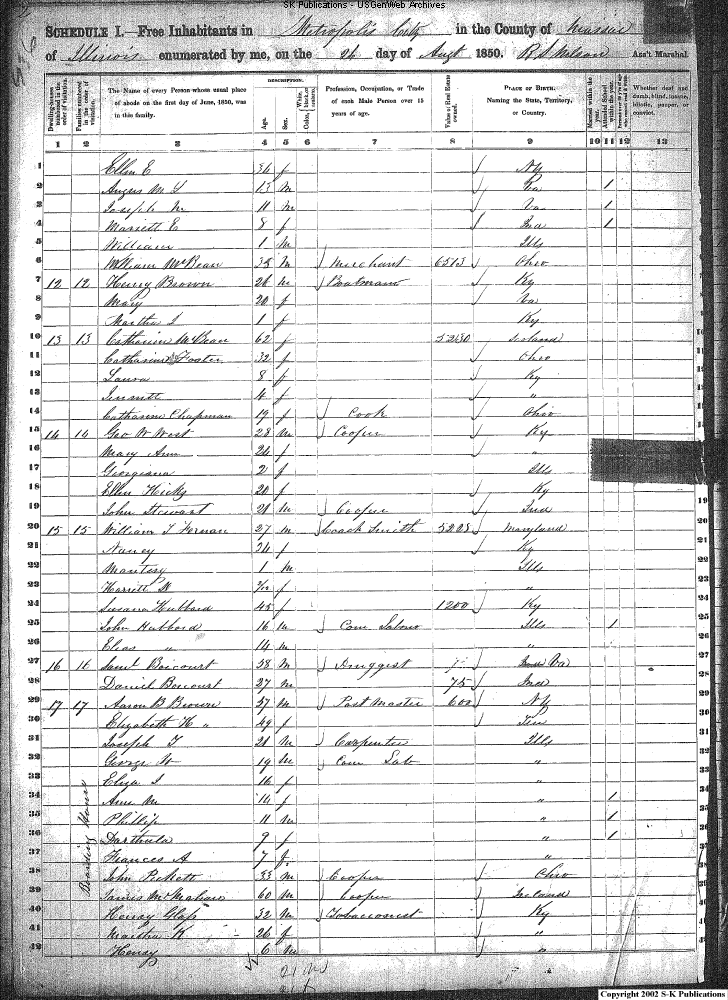 SK Publications - USGenWeb Archives
SCHEDULE I.—Free Inhabitants in Metropolis City in the County of Massac
of Illinois enumerated by me, on the 26 day of Augt 1850. R S Nelson Ass't. Marshal.
Dwelling-houses numbered in the order of visitation.
Families numbered in the order of visitation.
The Name of every Person whose usual place of abode on the first day of June, 1850, was in this family.
DESCRIPTION.
Age. Sex. White, black, or mulatto. Color,
Profession, Occupation, or Trade of each Male Person over 15 years of age.
Value of Real Estate owned.
PLACE OF BIRTH. Naming the State, Territory, or Country.
Married within the year.
Attended School within the year.
Whether deaf and dumb, blind, insane, idiotic, pauper, or convict.
1 2 3 4 5 6 7 8 9 10 11 12 13
1 Ellen E 36 f NY
2 Angus M 13 m Va 1
3 Joseph M 11 m Va 1
4 Mariett E 8 f Ind 1
5 William 1 m Ills
6 William McBean 35 m Merchant 6513 Ohio
7 12 12 Henry Brown 26 m Boatman Ky
8 Mary 20 f Va
9 Martha J 1 f Ky
10 13 13 Catharine McBean 62 f 5230 Scotland
11 Catharine Foster 32 f Ohio
12 Laura 8 f Ky
13 4 f "
14 Catharine Chapman 19 f Cook Ohio
15 14 14 Geo W West 28 m Cooper Ky
16 Mary Ann 24 f "
17 Georgiana 2 f Ills
18 Ellen Hicks 20 f Ky
19 John Stewart 21 m Cooper Ind 19
20 15 15 William T 27 m Coach Smith 5228 Maryland 20
21 Nancy 24 f Ky 21
22 1 m Ills 22
23 Harriett f " 23
24 Susana Hubbard 45 f 1200 Ky 24
25 John Hubbard 16 m Com Labour Ills 1 25
26 Elias " 14 m " 26
27 16 16 Saml Boicourt 58 m Druggist Va 27
28 Daniel Boicourt 27 m 75 Ind 28
29 17 17 Aaron B Brown 57 m Post Master 600 NY 29
30 Elizabeth H " 49 f Ten 30
31 Joseph T 21 m Carpenter Ills 31
32 George W 19 m Com Lab " 32
33 Eliza J 16 f " 33
34 Ann M 14 f " 1 34
35 Phillip 11 m " 1 35
36 Darthula 9 f " 1 36
37 Frances A 7 f " 37
38 John Pickett 33 m Cooper Ohio 38
39 James McMahan 60 m Cooper Ireland 39
40 Henry Glass 32 m Tobacconist Ky 40
41 Martha K 26 f " 41
42 Henry 6 m " 42
Boarding House
21 M
21 f
Copyright 2002 S-K Publications